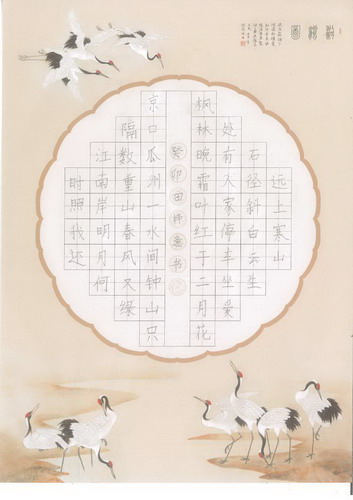 远上寒山
石径斜白云生
处有人家停车坐爱
枫林晚霜叶红于二月花
癸卯田梓书
京口瓜州一水间钟山只
隔数重山春风又绿
江南岸明月何
时照我还